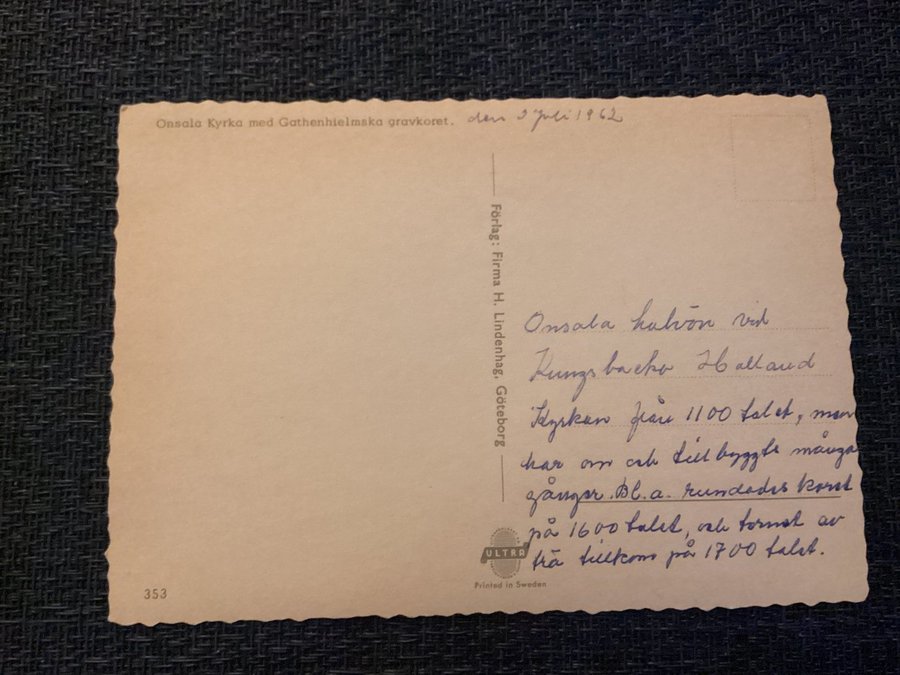 Onsala Kyrka med Gathenhielmska gravkoret. den 2 Juli 1962
Förlag: Firma H. Lindenhag, Göteborg
Onsala halvön vid
Kungsbacka Halland
Kyrkan från 1100 talet, men
har om och tillbyggts många
gånger. Bl.a. rundades koret
på 1600 talet, och tornet av
trä tillkom på 1700 talet.
ULTRA
Printed in Sweden
353